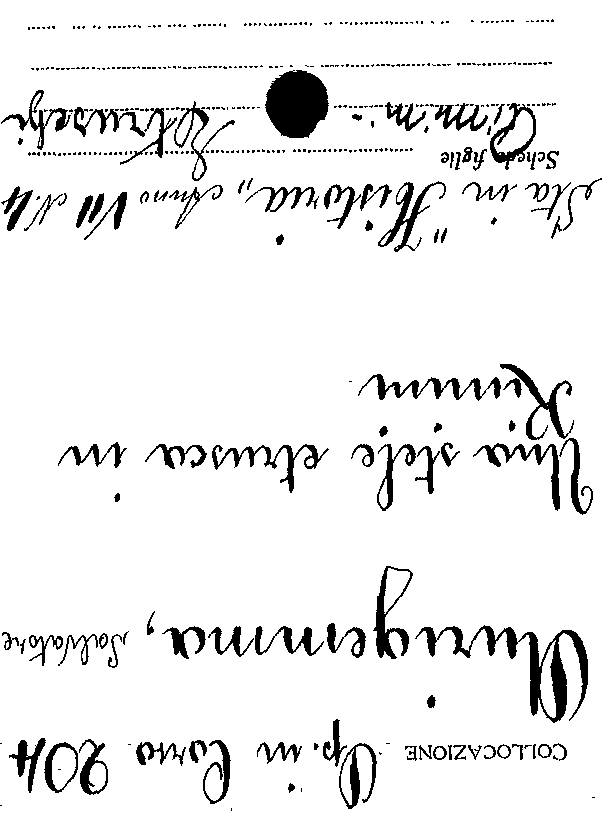 COLLOCAZIONE Op. in Corso 204
Aurigemma, Salvatore
Una stele etrusca in
Rimini
Sta in "Historia„ Anno VII N. 4
Schede figlie
Rimini - Etruschi